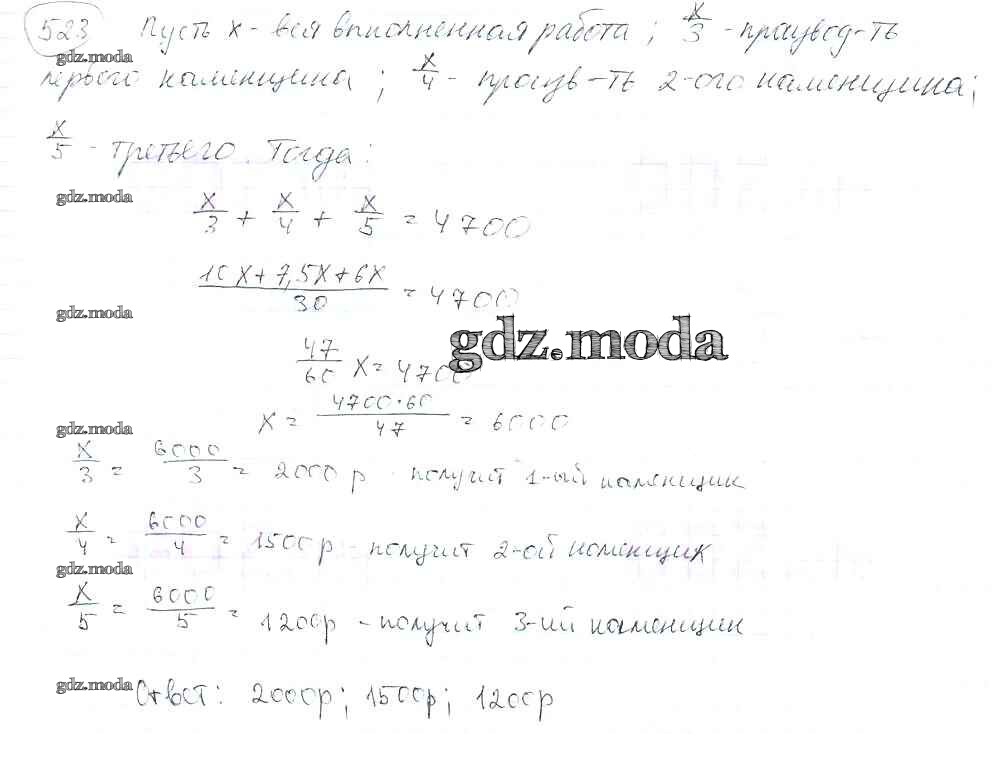 523 Пусть x - вся вполненная работа; x/3 - произвед-ть
gdz.moda
первого каменщика; x/4 - произв-ть 2-ого каменщика;
x/5 - третьего. Тогда:
gdz.moda
x/3 + x/4 + x/5 = 4700
(10x + 7,5x + 6x)/30 = 4700
gdz.moda
gdz.moda
47/60 x = 4700
x = (4700·60)/47 = 6000
gdz.moda
x/3 = 6000/3 = 2000 р - получит 1-ый каменщик
x/4 = 6000/4 = 1500р - получит 2-ой каменщик
gdz.moda
x/5 = 6000/5 = 1200р - получит 3-ий каменщик
gdz.moda
Ответ: 2000р; 1500р; 1200р